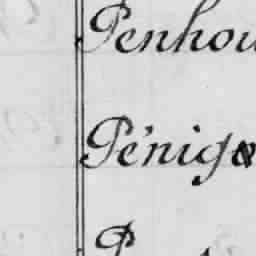 Penhou
Pénigo
P